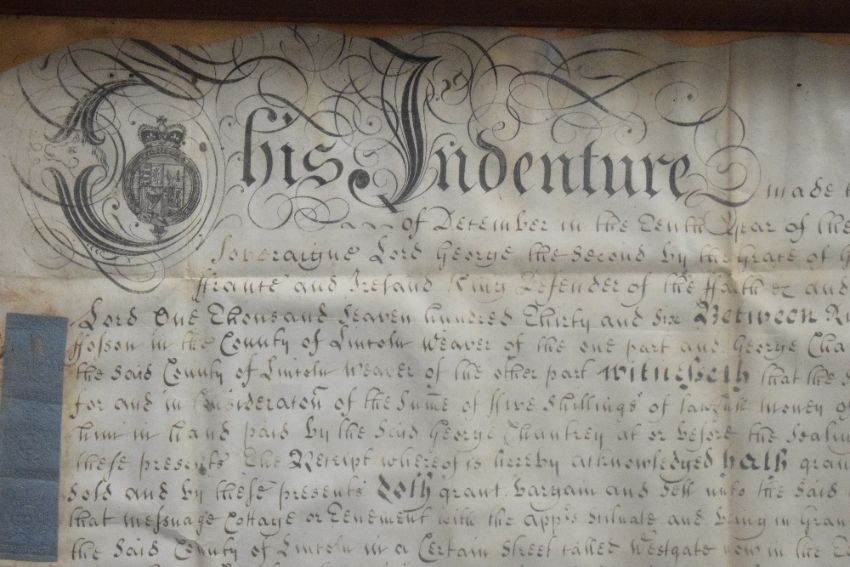 This Indenture made t
of December in the tenth Year of the
Soveraigne Lord George the Second by the Grace of G
ffrance and Ireland King Defender of the ffaith &c and
Lord One Thousand Seaven hundred Thirty and six Between Ri
ffosson in the County of Lincoln Weaver of the one part and George Cha
the said County of Lincoln Weaver of the other part Witnesseth that the s
for and in Consideraton of the Summe of ffive Shillings of lawfull money of
him in hand paid by the said George Chantrey at or before the Sealin
these presents The Receipt whereof is hereby acknowledged hath gran
sold and by these presents Doth grant bargain and sell unto the said
that messuage Cottage or Tenement with the apprs Scituate and being in Gran
the said County of Lincoln in a Certain Street called Westgate now in the